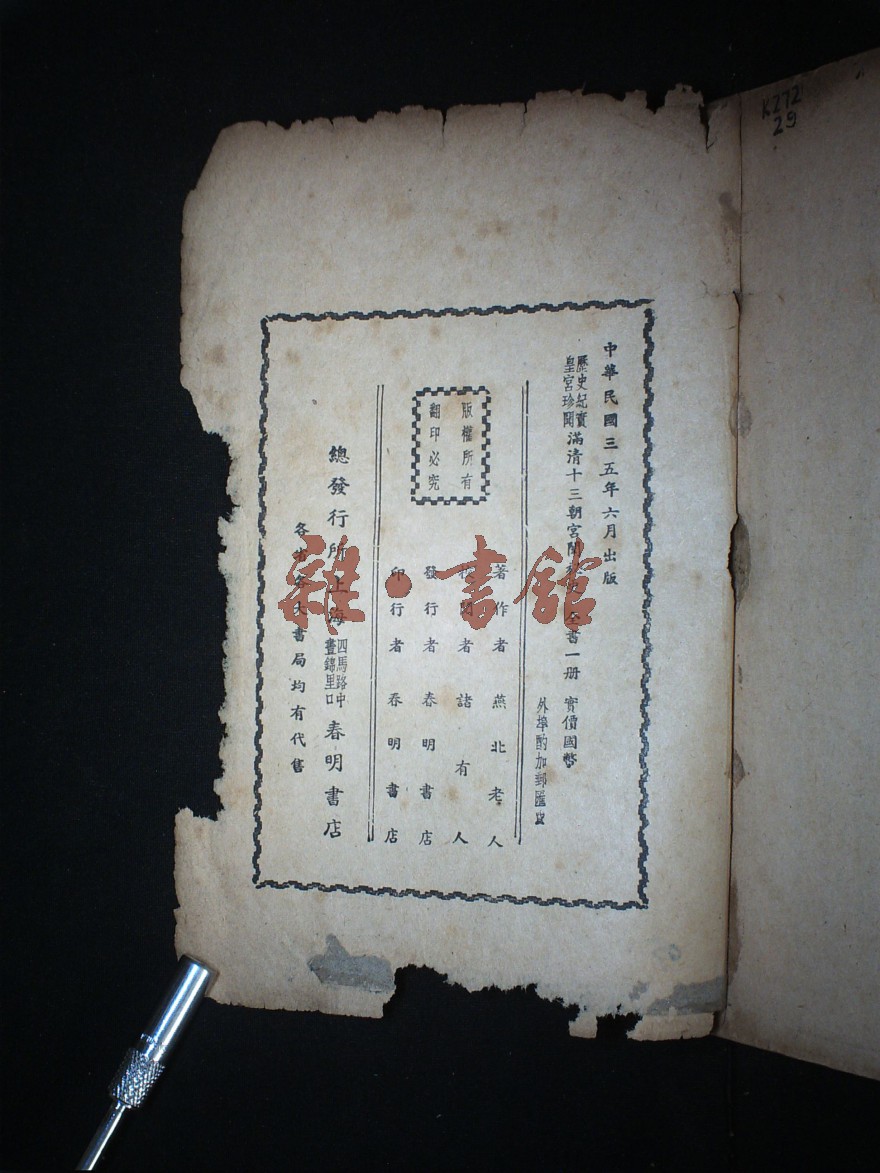 K272
29
中華民國三五年六月出版
歷史紀實
皇宮珍聞
滿清十三朝宮闈 全書一册 實價國幣
外埠酌加郵匯費
著作者 燕北老人
校閱者 諸有人
發行者 春明書店
印行者 春明書店
版權所有
翻印必究
總發行所 上海 四馬路中
畫錦里口 春明書店
各省各大書局均有代售
雜·書館